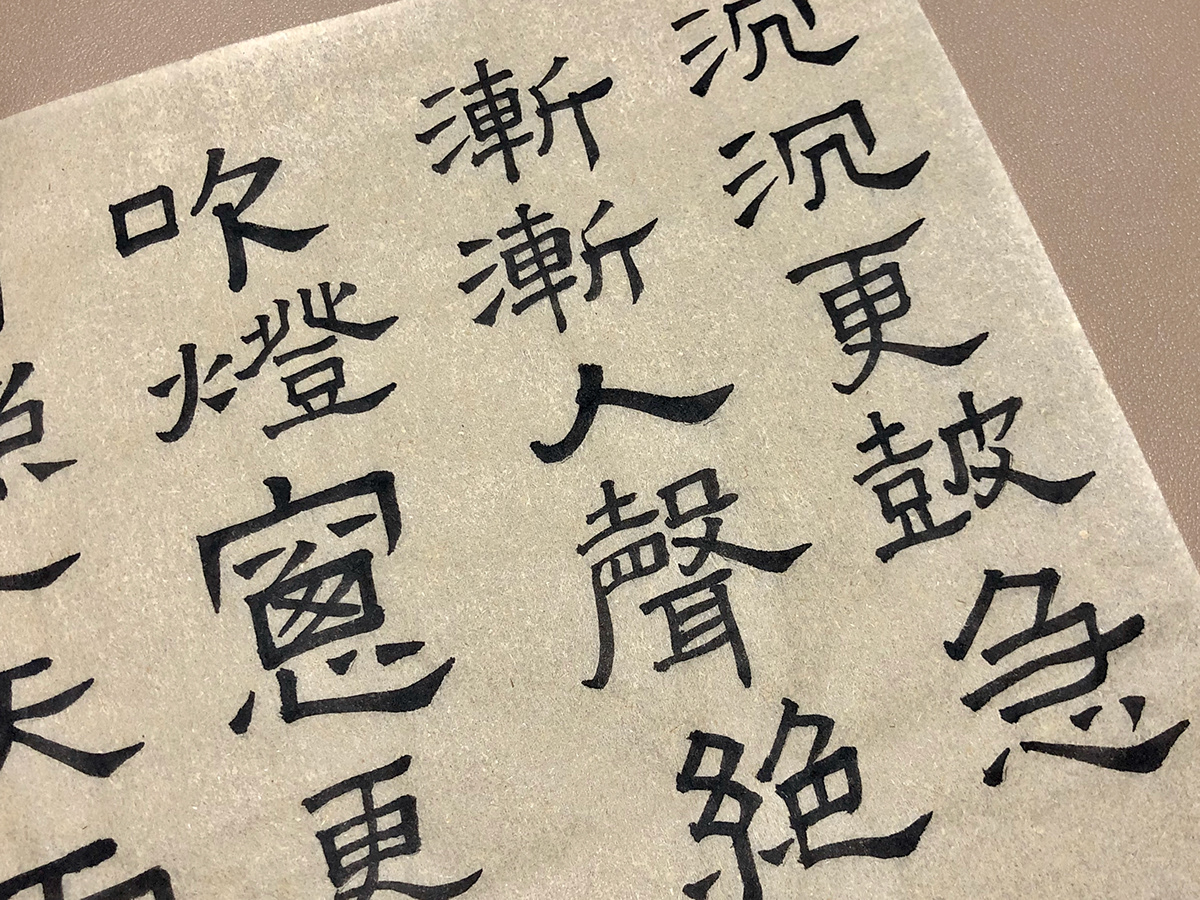 沉沉更鼓急
漸漸人聲絕
吹燈窻更
天